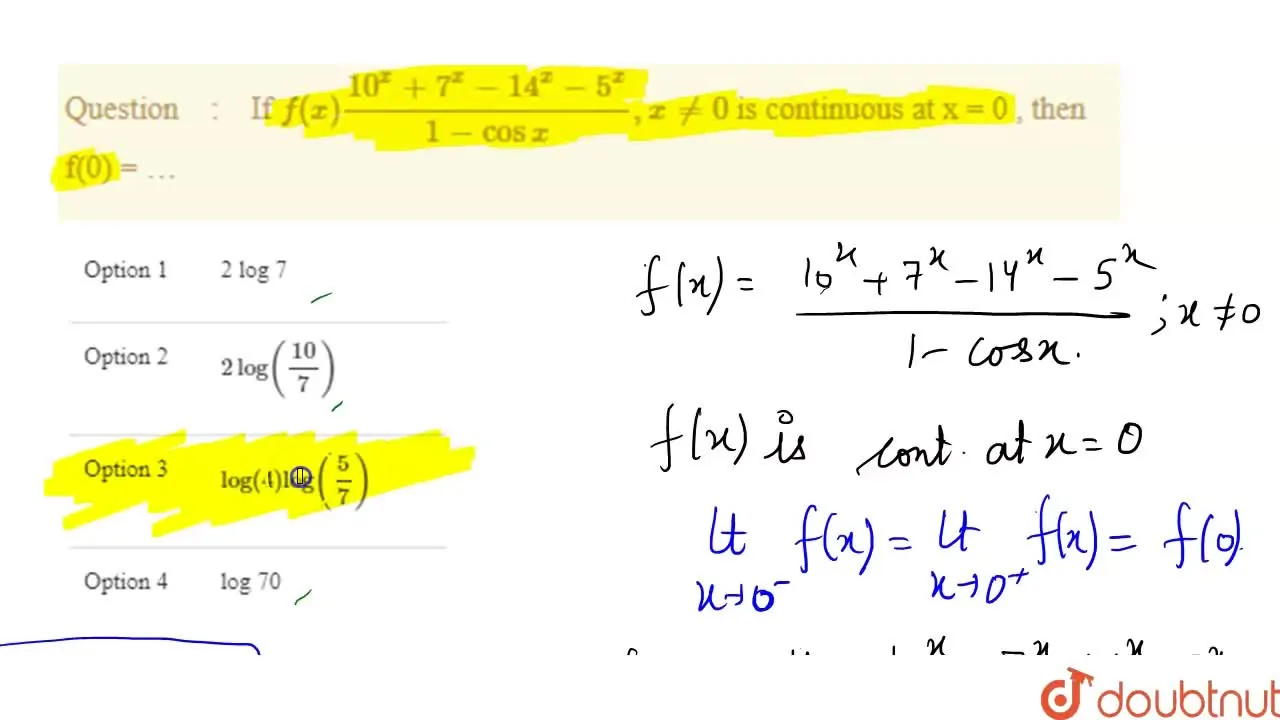 Question : If f(x) \frac{10^x + 7^x − 14^x − 5^x}{1 − cos x}, x ≠ 0 is continuous at x = 0 , then
f(0) = …
Option 1 2 log 7
Option 2 2 log(10/7)
Option 3 log(4)log(5/7)
Option 4 log 70
f(x) = \frac{10^x + 7^x − 14^x − 5^x}{1 − cos x.} ; x ≠ 0
f(x) is cont. at x = 0
Lt_{x→0^-} f(x) = Lt_{x→0^+} f(x) = f(0).
doubtnut